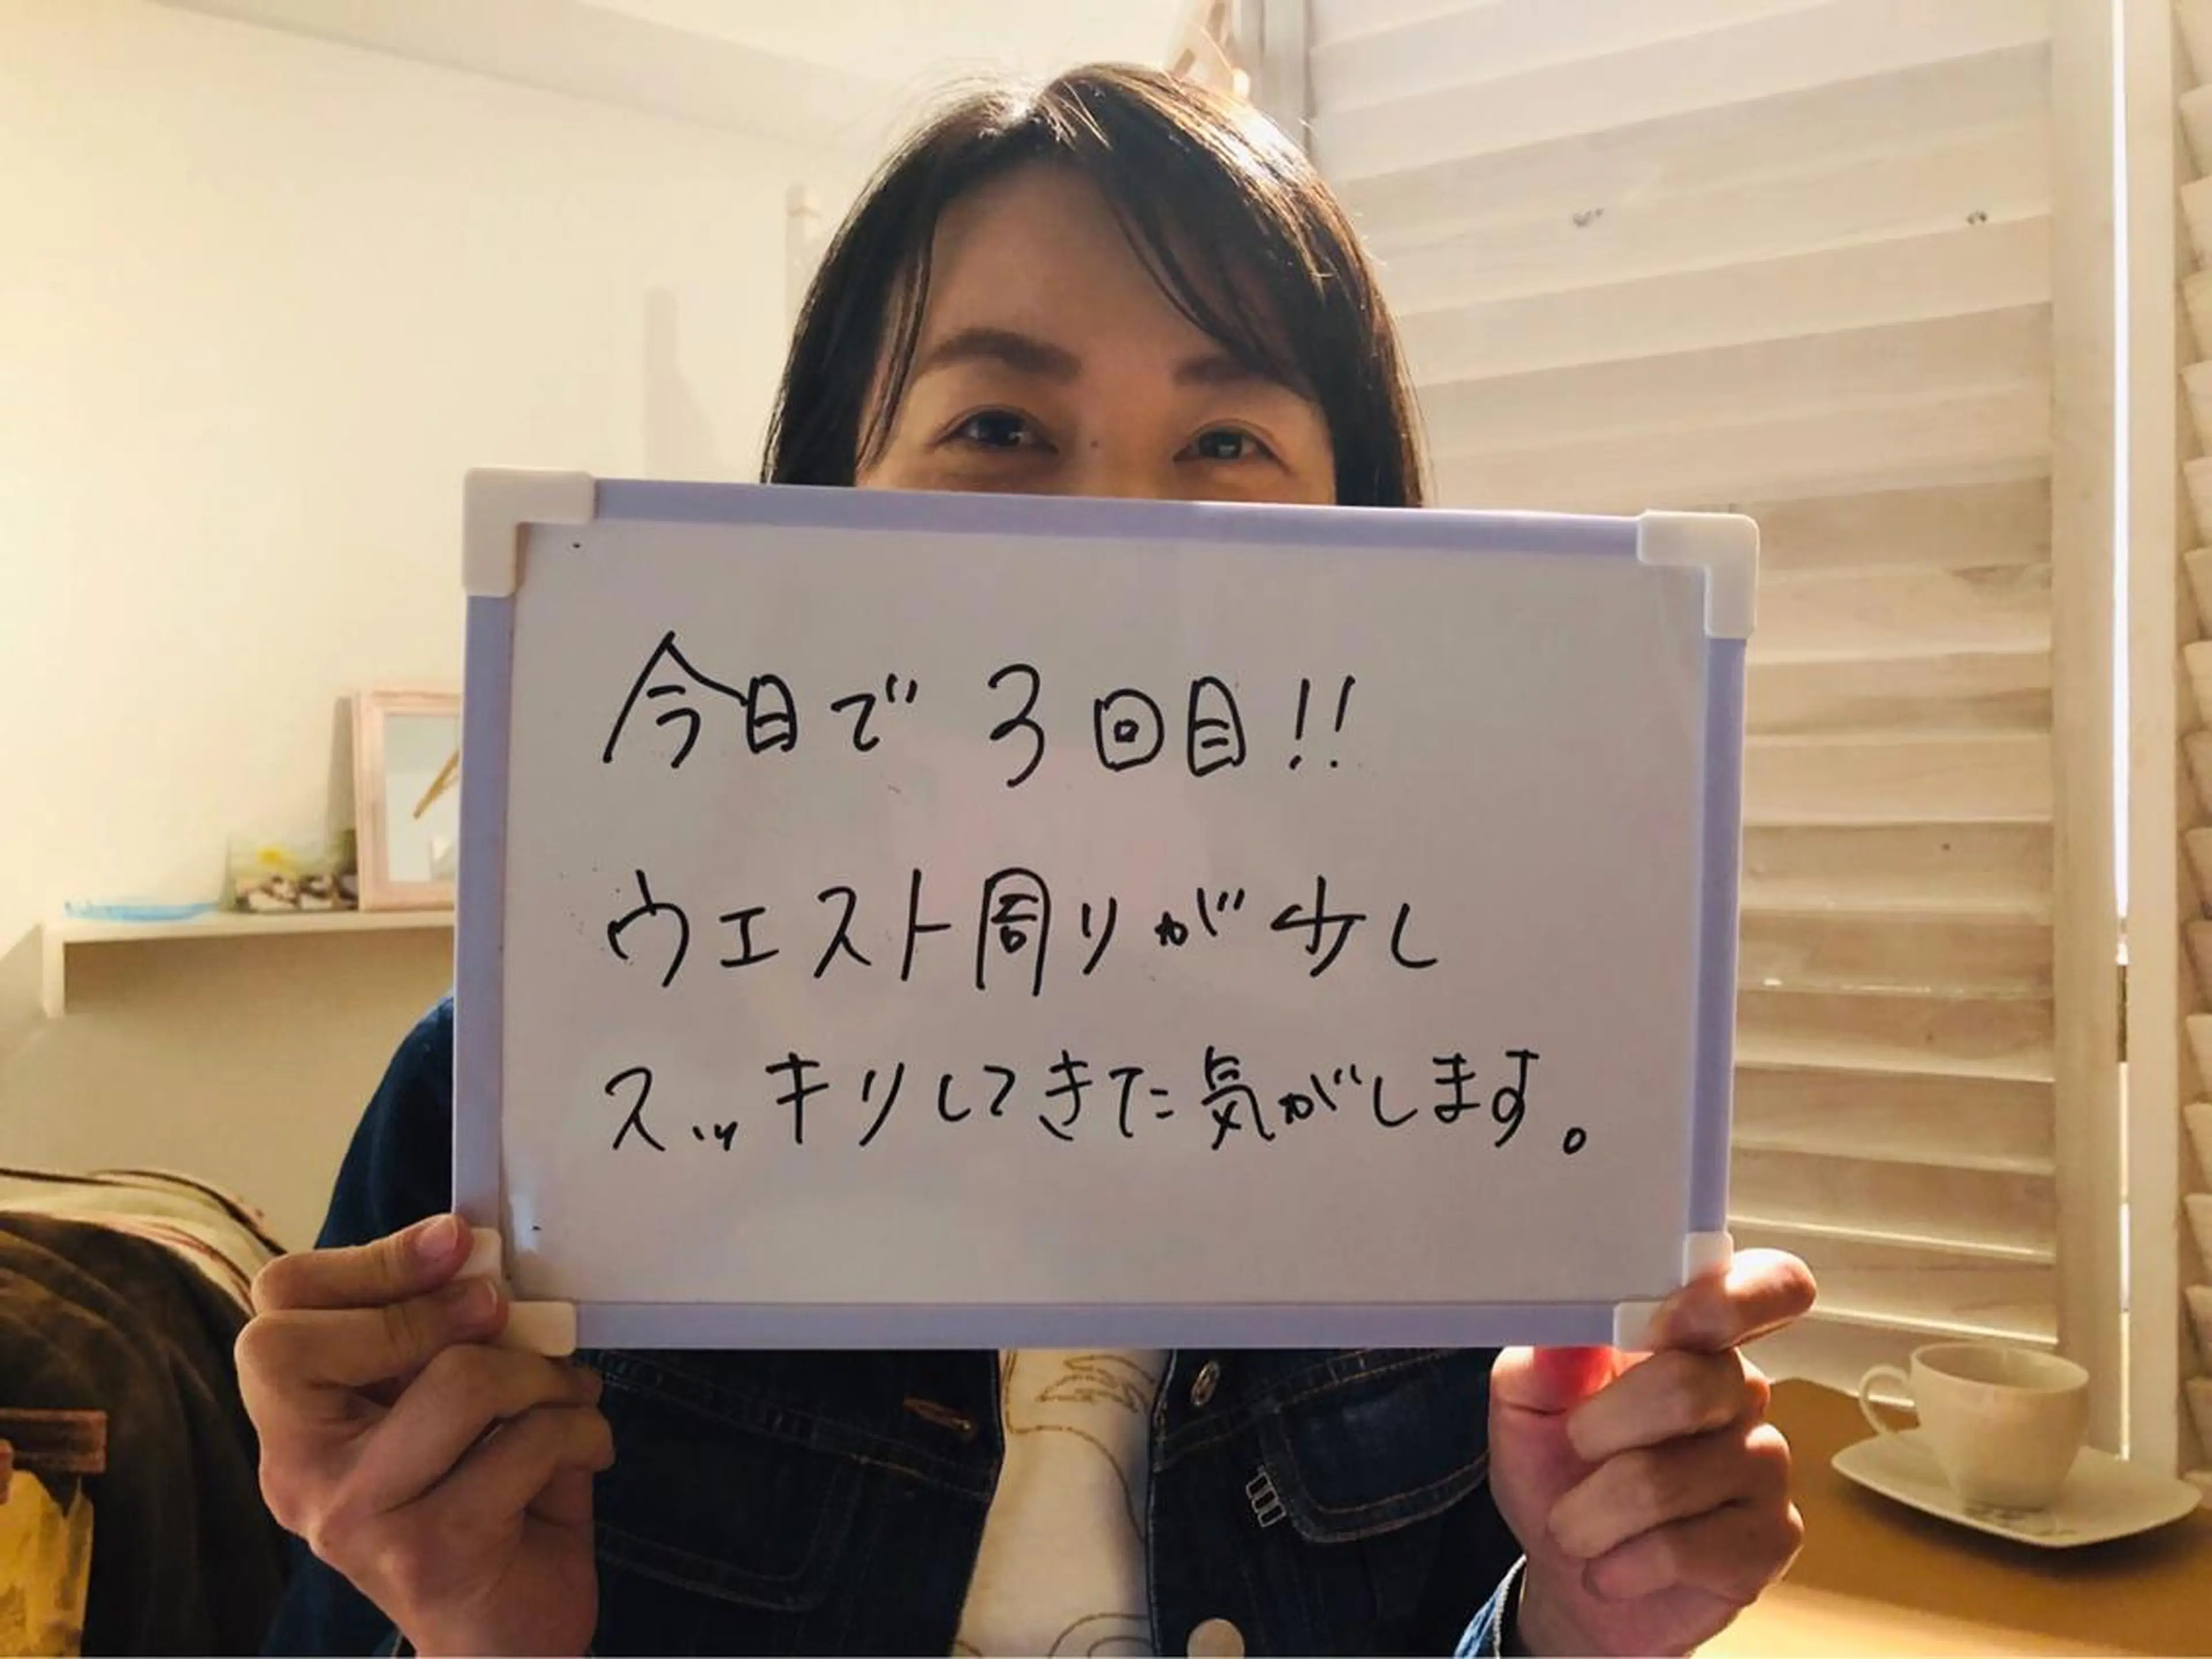 今日で3回目!!
ウエスト周りが少し
スッキリしてきた気がします。